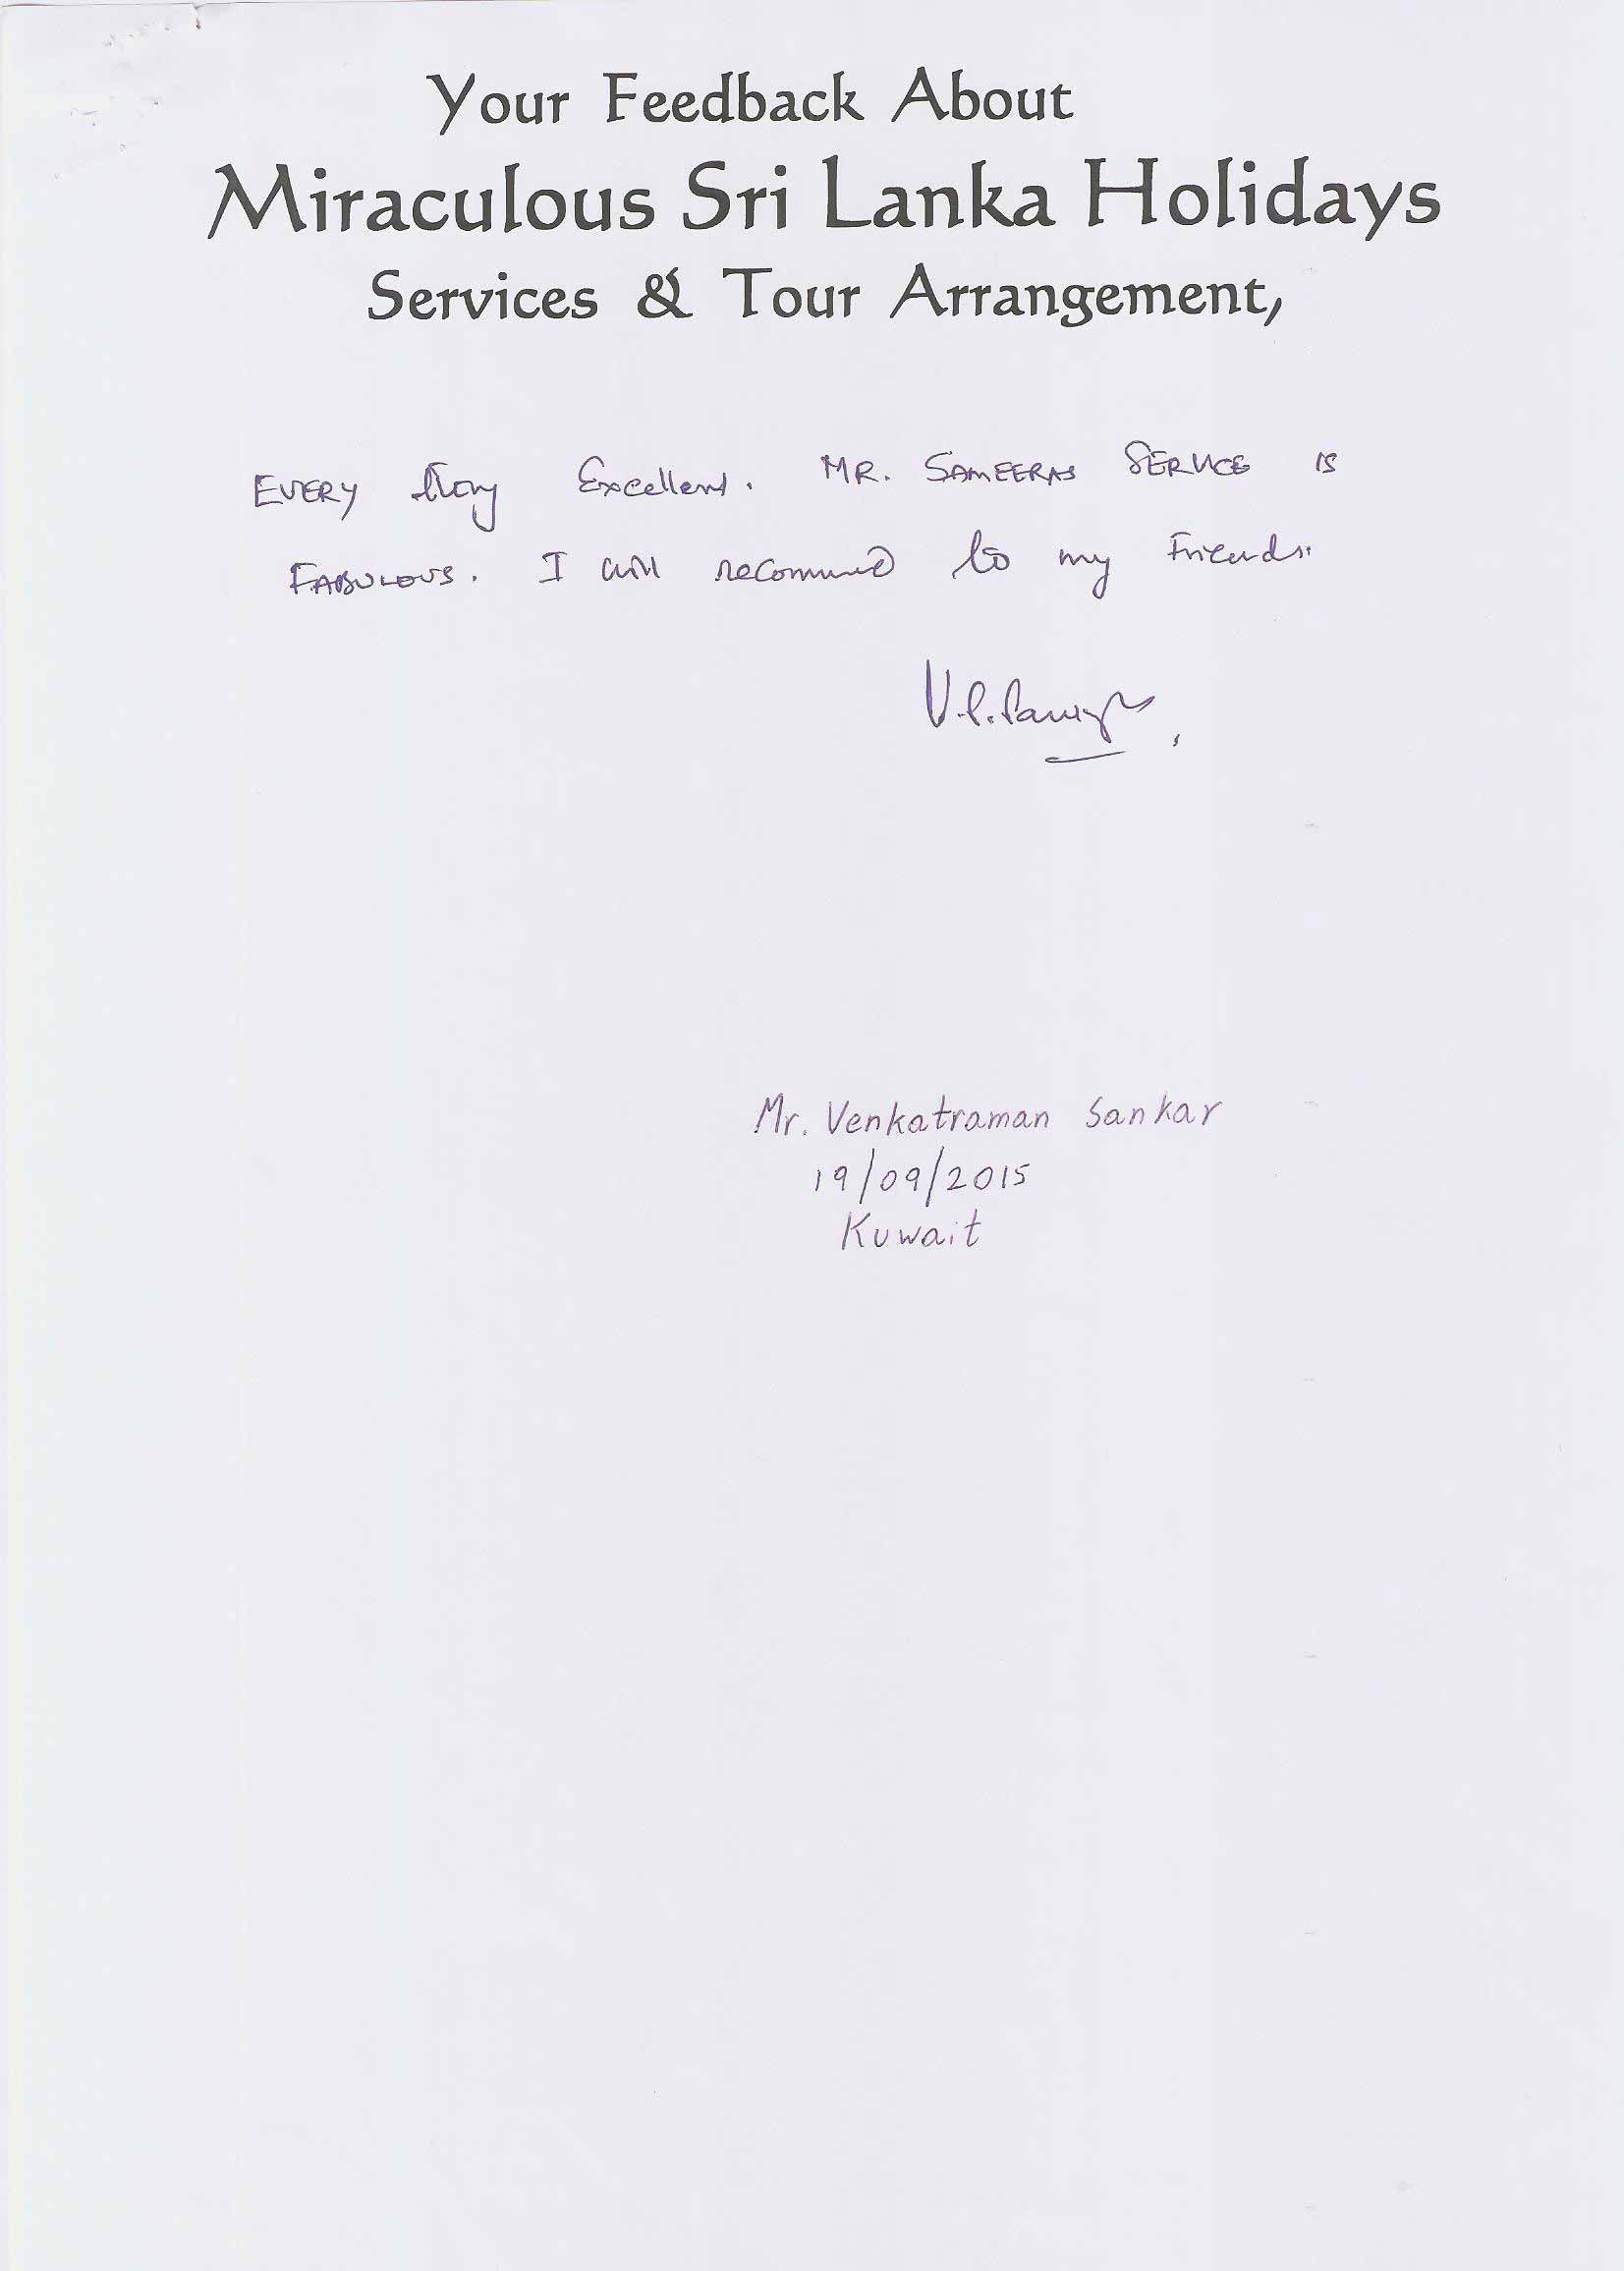 Your Feedback About
Miraculous Sri Lanka Holidays
Services & Tour Arrangement,
EVERY thing Excellent. MR. SAMEERAS SERVICE IS
FABULOUS. I will recommend to my Friends.
Mr. Venkatraman Sankar
19/09/2015
Kuwait